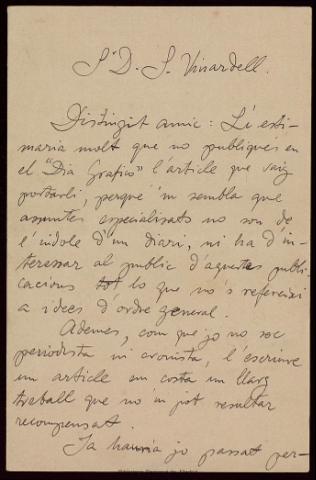 Sr D. S. Vinardell.
Distingit amic: Li esti-
maria molt que no publiqués en
el "Dia Grafico" l'article que vaig
portarli, perque 'm sembla que
assumtes especialisats no son de
l'indole d'un diari, ni ha d'in-
teressar al public d'aquetes publi-
cacions tot lo que no's refereixi
a idees d'ordre general.
Ademes, com que jo no soc
periodista ni cronista, l'escriure
un article em costa un llarg
treball que no'm pot resultar
recompensat.
Ja hauria jo passat per-